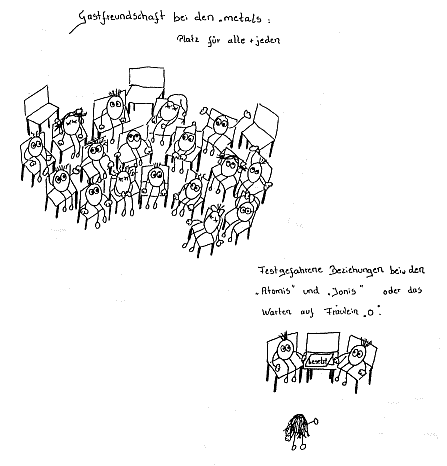 Gastfreundschaft bei den „metals:
Platz für alle + jeden
Festgefahrene Beziehungen bei den
„Atomis" und „Jonis" oder das
Warten auf Fräulein „O".
besetzt